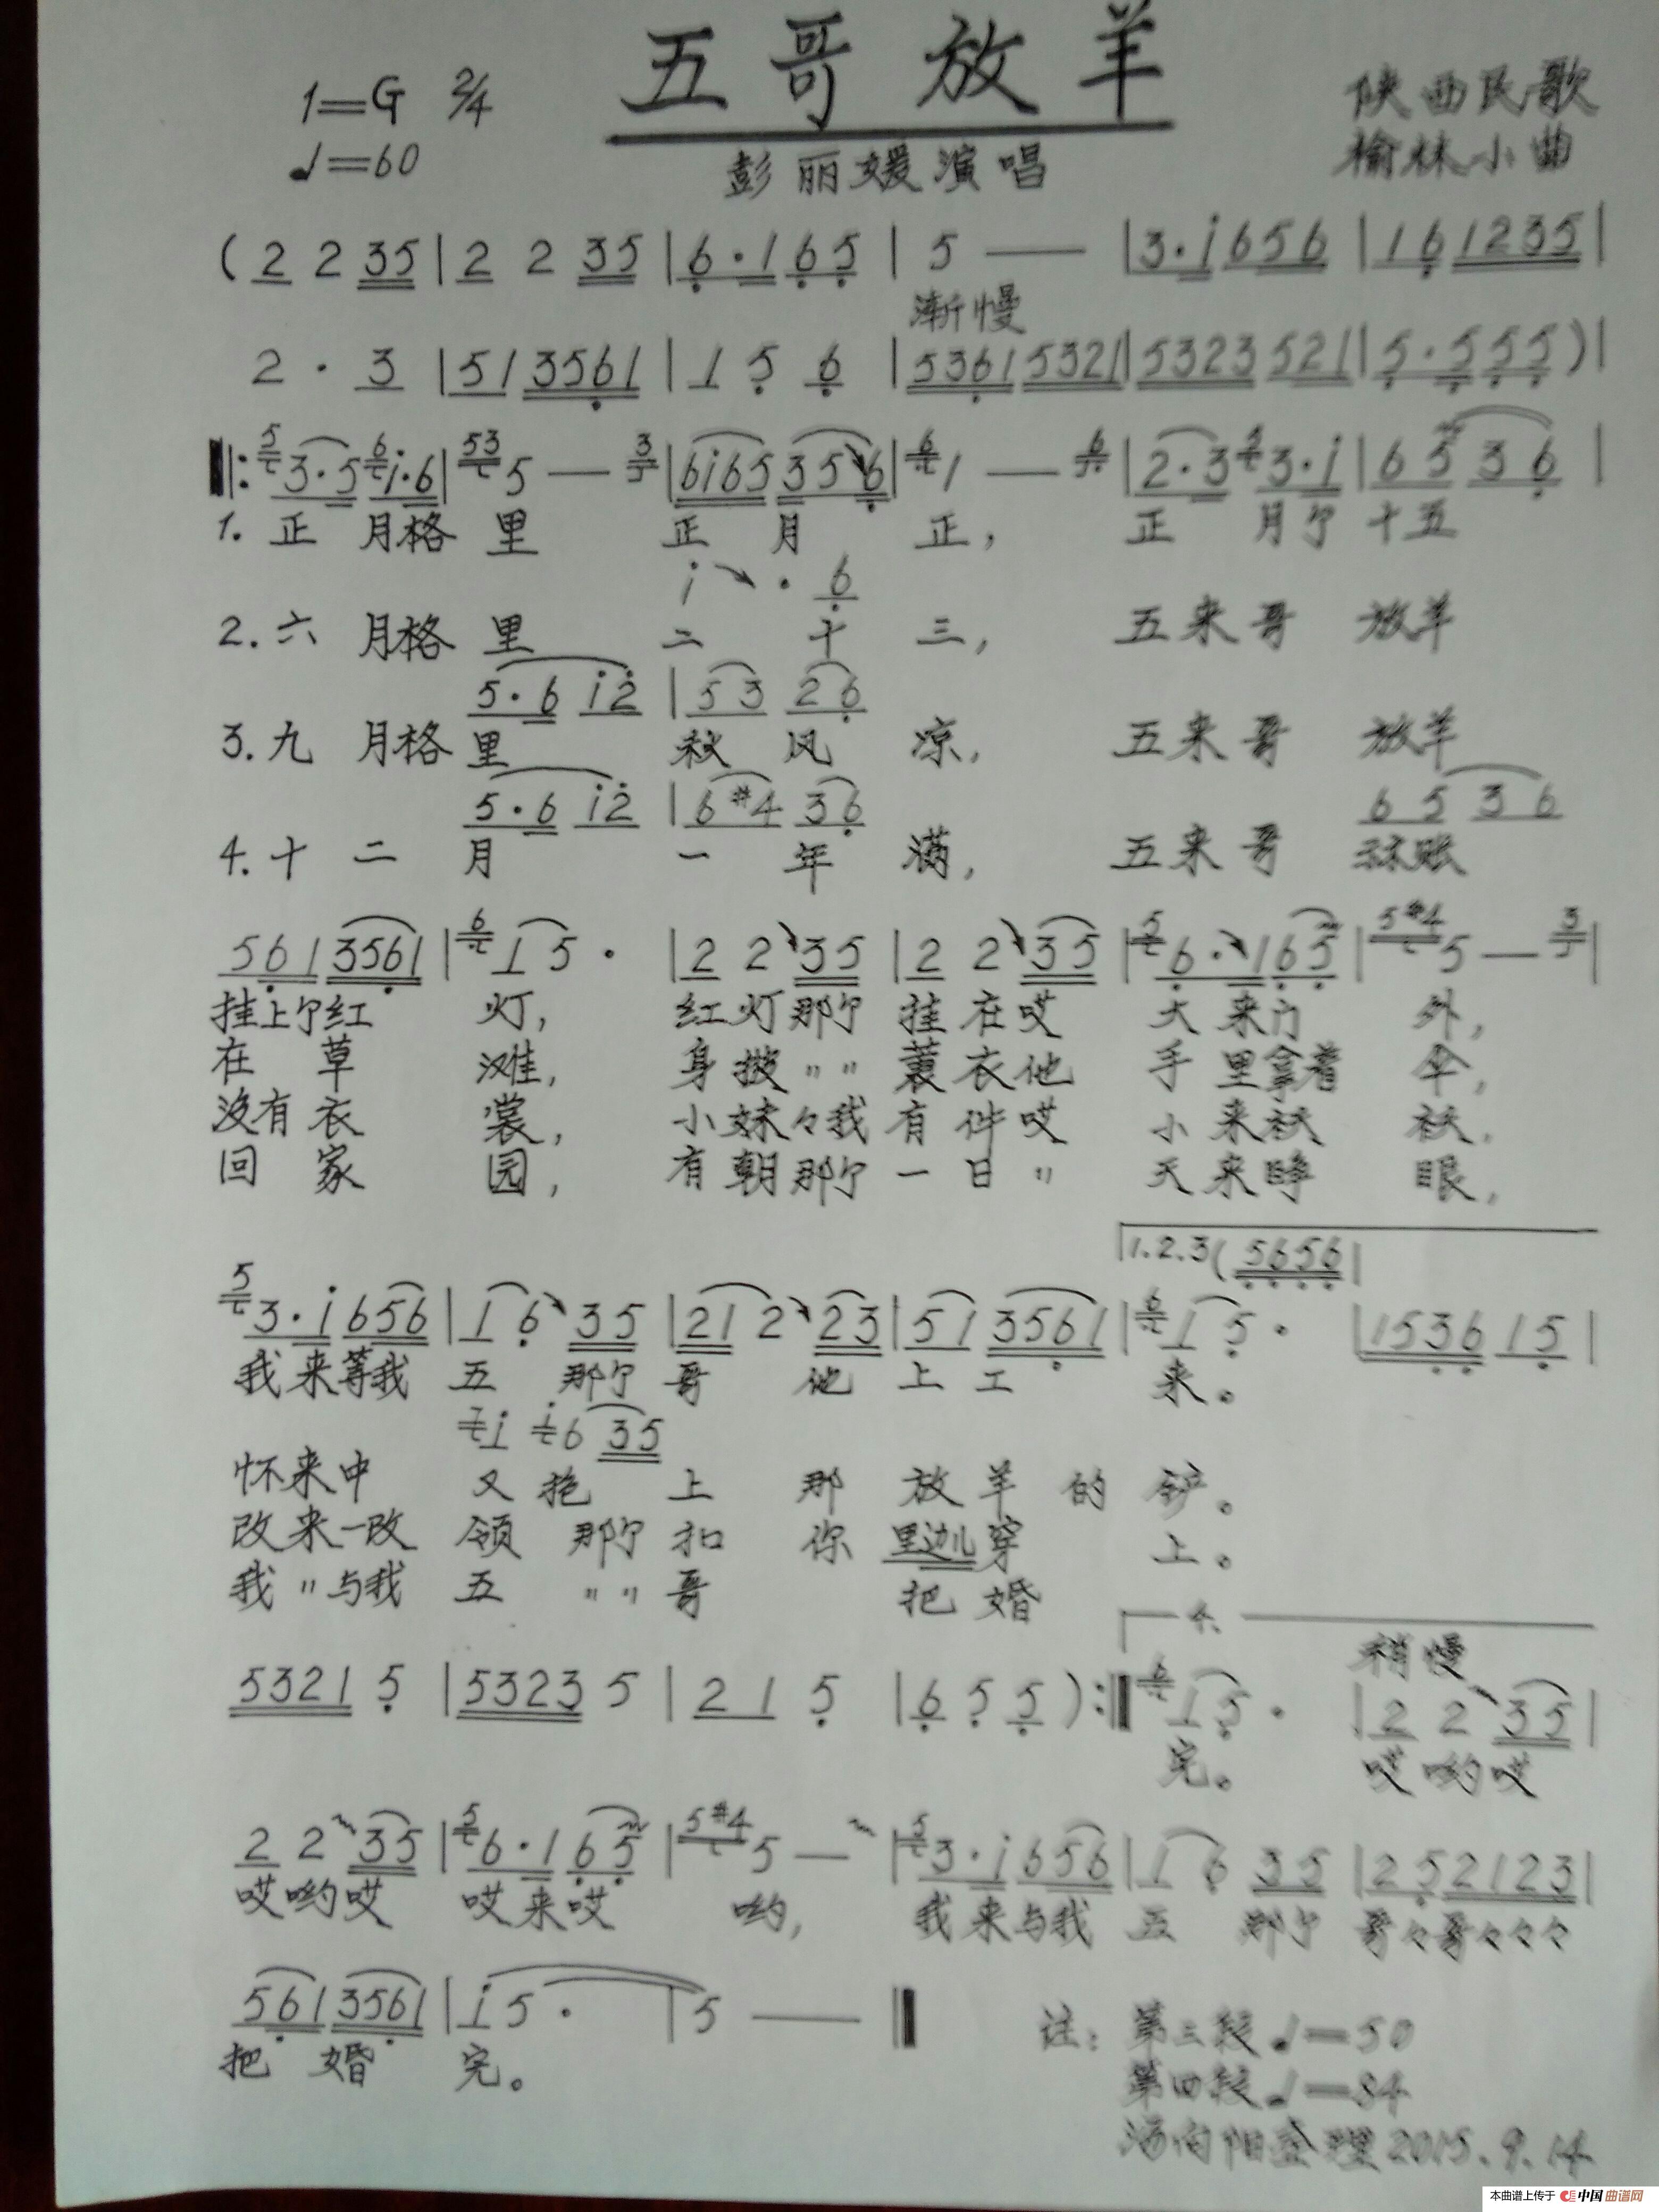 五哥放羊
1=G 2/4
♩=60
彭丽媛演唱
陕西民歌
榆林小曲
(2 2 35|2 2 35|6·1 65|5 —|3·i 656|16 1235|
渐慢
2·3|51 3561|1 5 6|5361 5321|5323 521|5·5 55)|
‖:5 3·5 6 i·6|53 5 — 3|6i65 356|6 1 — 6|2·3 5 3·i|65 36|
1.正 月格 里 正 月 正, 正 月个 十五
i · 6
2.六 月格 里 二 十 三, 五来哥 放羊
5·6 i2|53 26
3.九 月格里 秋 风 凉, 五来哥 放羊
5·6 i2|6#4 36 65 36
4.十 二 月 一 年 满, 五来哥 算账
561 3561|6 1 5·|2 2 35|2 2 35|5 6·1 65|5#4 5 — 3|
挂上个红 灯, 红灯那个 挂在哎 大来门 外,
在 草 滩, 身披〃〃 蓑衣他 手里拿着 伞,
没有衣 裳, 小妹々我 有件哎 小来袄 袄,
回 家 园, 有朝那个 一日〃 天来睁 眼,
1.2.3(5656|
5 3·i 656|1 6 35|21 2 23|51 3561|6 1 5·|1536 15|
我来等我 五 那个 哥 他 上工 来。
7 i i 6 35
怀来中 又抱 上 那 放羊的 铲。
改来一改 领 那个 扣 你 里迦儿穿 上。
我〃与我 五 〃〃哥 把婚
4.
稍慢
5321 5|5323 5|21 5|6 5 5):‖6 1 5·|2 2 35|
完。 哎哟哎
2 2 35|5 6·1 65|5#4 5 —|5 3·i 656|1 6 35|25 2123|
哎哟哎 哎来哎 哟, 我来与我 五 那个 哥々哥々々々
561 3561|i 5·|5 —‖
把 婚 完。
注:第三段♩=50
第四段♩=84
向阳整理2015.9.14
本曲谱上传于 中国曲谱网